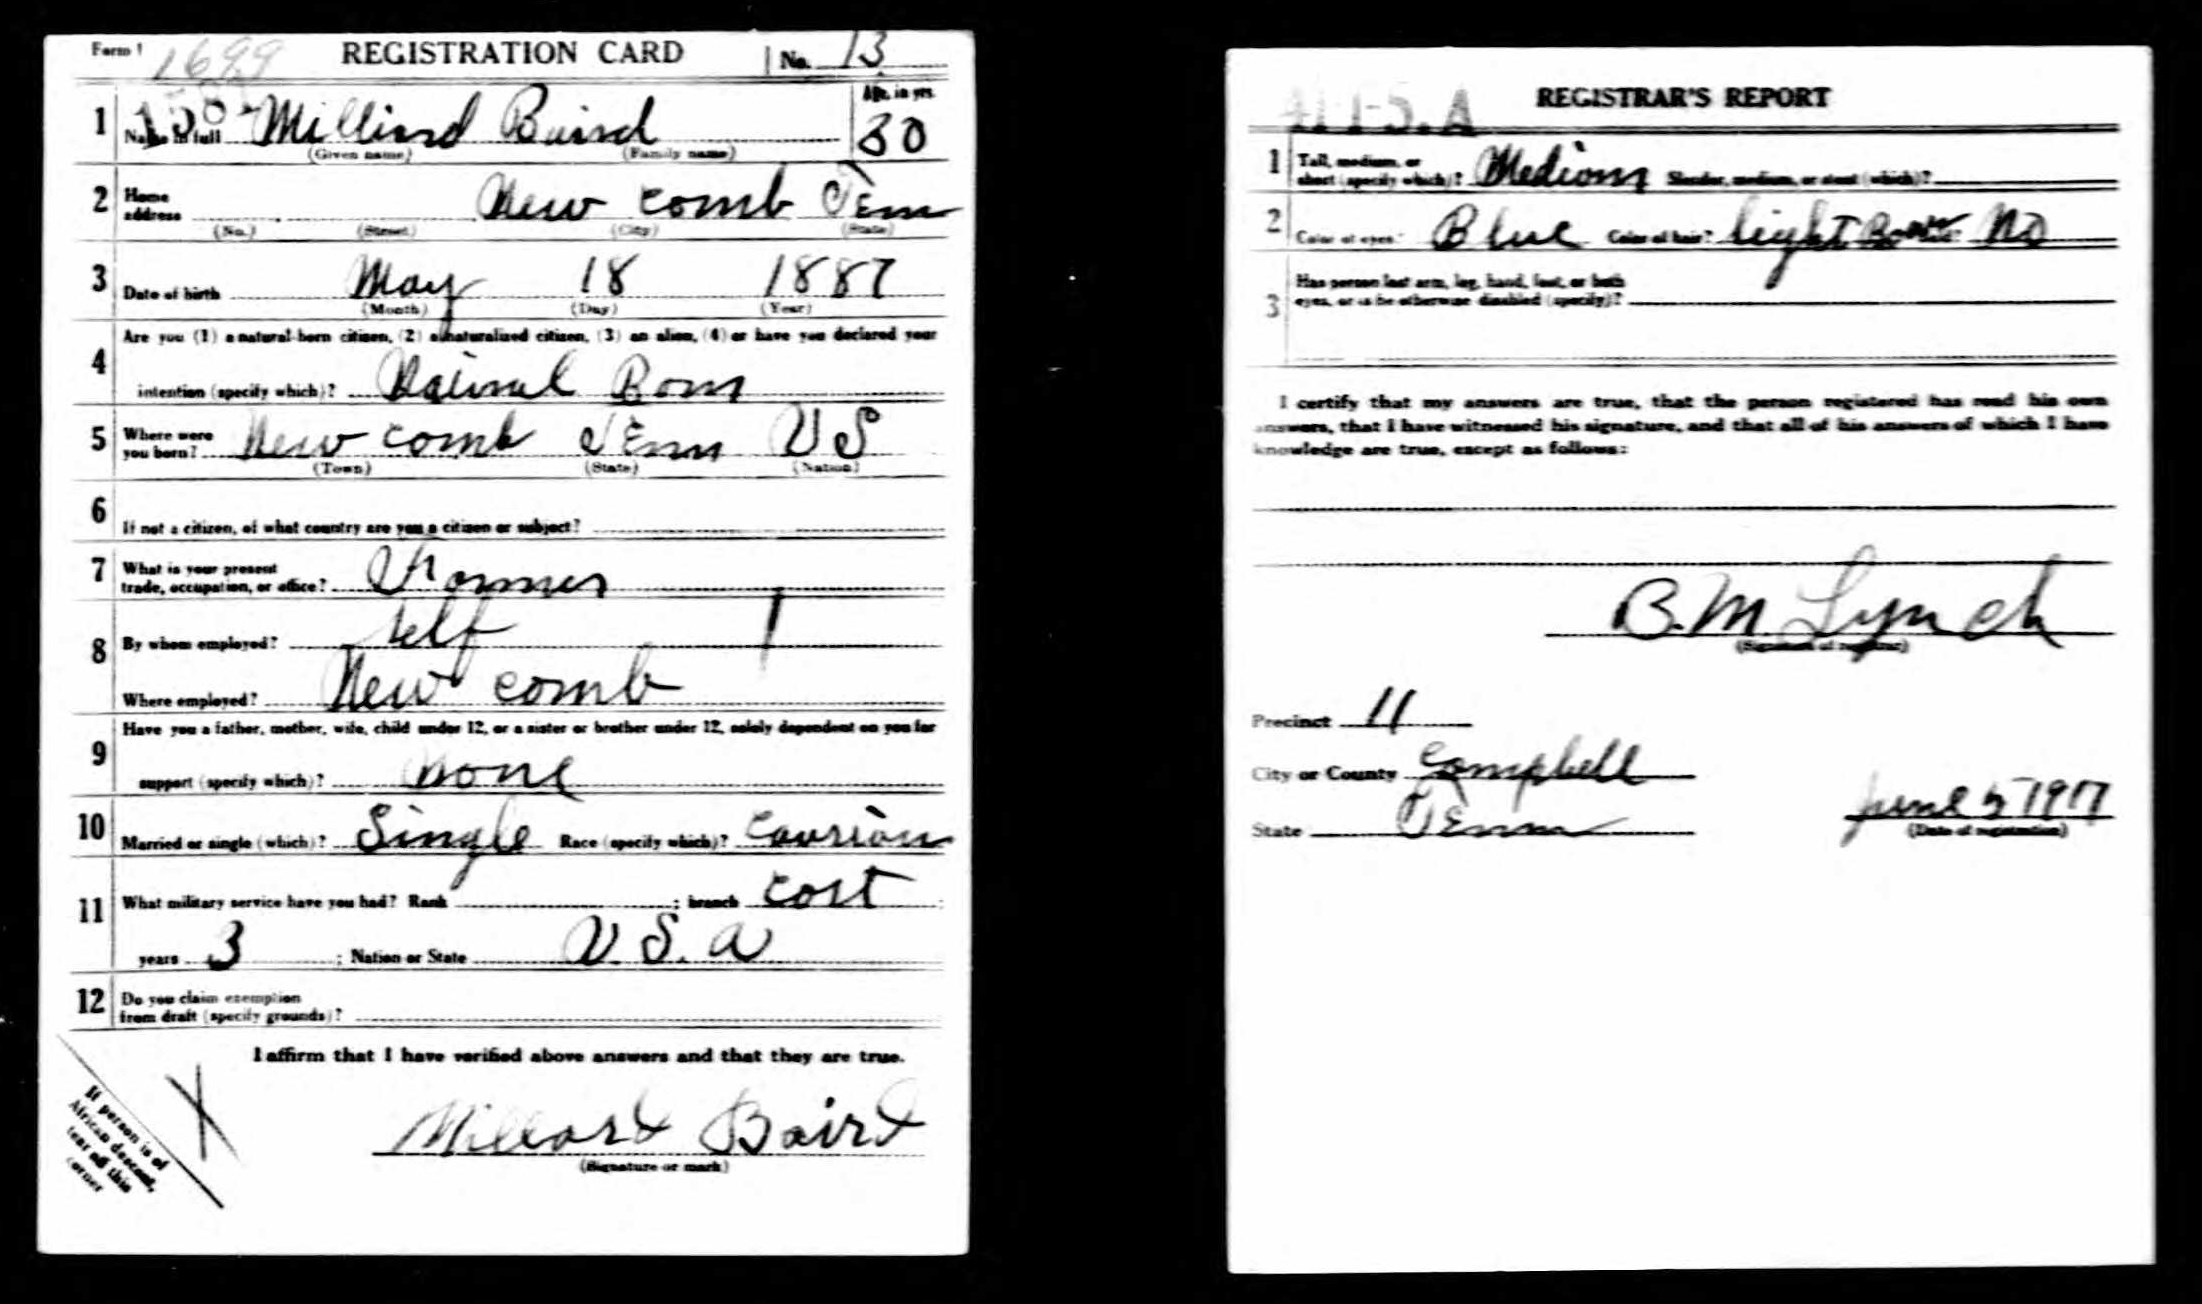 Form 1 1699 REGISTRATION CARD No. 13
1 Name in full Milliard Baird Age, in yrs. 30
(Given name) (Family name)
2 Home address New comb Tenn
(No.) (Street) (City) (State)
3 Date of birth May 18 1887
(Month) (Day) (Year)
4 Are you (1) a natural-born citizen, (2) a naturalized citizen, (3) an alien, (4) or have you declared your
intention (specify which)? Natural Born
5 Where were you born? New comb Tenn U S
(Town) (State) (Nation)
6 If not a citizen, of what country are you a citizen or subject?
7 What is your present
trade, occupation, or office? Farmer
8 By whom employed? self
Where employed? New comb
9 Have you a father, mother, wife, child under 12, or a sister or brother under 12, solely dependent on you for
support (specify which)? none
10 Married or single (which)? Single Race (specify which)?
11 What military service have you had? Rank ; branch cost ;
years 3 ; Nation or State U. S. a
12 Do you claim exemption
from draft (specify grounds)?
I affirm that I have verified above answers and that they are true.
Millard Baird
(Signature or mark)
If person is of
African descent,
tear off this
corner
REGISTRAR'S REPORT
1 Tall, medium, or
short (specify which)? Medium Slender, medium, or stout (which)?
2 Color of eyes? Blue Color of hair? light Brown No
3 Has person lost arm, leg, hand, foot, or both
eyes, or is he otherwise disabled (specify)?
I certify that my answers are true, that the person registered has read his own
answers, that I have witnessed his signature, and that all of his answers of which I have
knowledge are true, except as follows:
B. M Lynch
(Signature of registrar)
Precinct 11
City or County Campbell
State Tenn June 5 1917
(Date of registration)